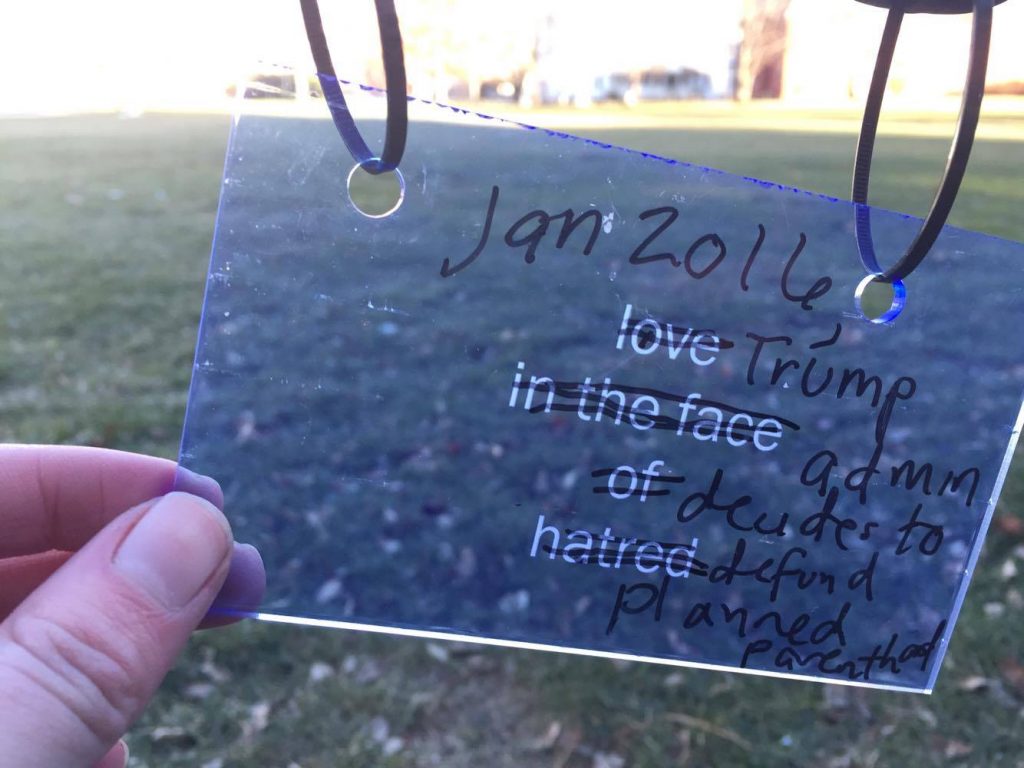 Jan 2016
love Trump
in the face
admin
of decides to
hatred defund
planned
parenthood